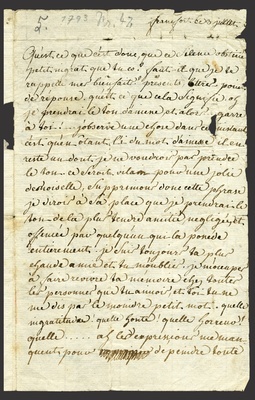 5. 1793 No. 47 francfort ce 3 juillet
Qu'est ce que c'est donc que ce silence obstiné
petit ingrat que tu es? faut-il que je te
rappelle mes bienfaits présente lettre pour
de réponse, qu'est ce que cela signifie oh
je prendrai le ton damené et alors garre
à toi j'observe une chose dans cet instant
c'est qu'en otant le du mot damnée il en
reste un dont je ne voudrois pas prendre
le ton ce seroit vilain pour une jolie
demoiselle, supprimons donc cette phrase
je dirois à sa place que je prendrai le
ton de la plus tendre amitié negligée et
offensée par quelqu'un qui la possede
entierement. je suis toujours ta plus
chaude amie et tu m'oublies. je m'occupe
à faire revivre ta memoire chez toutes
les personnes que tu aimois et toi tu ne
me dis pas le moindre petit mot. quelle
ingratitude quelle honte quelle horreur!
quelle ..... ah les expressions me man
quent pour de peindre toute